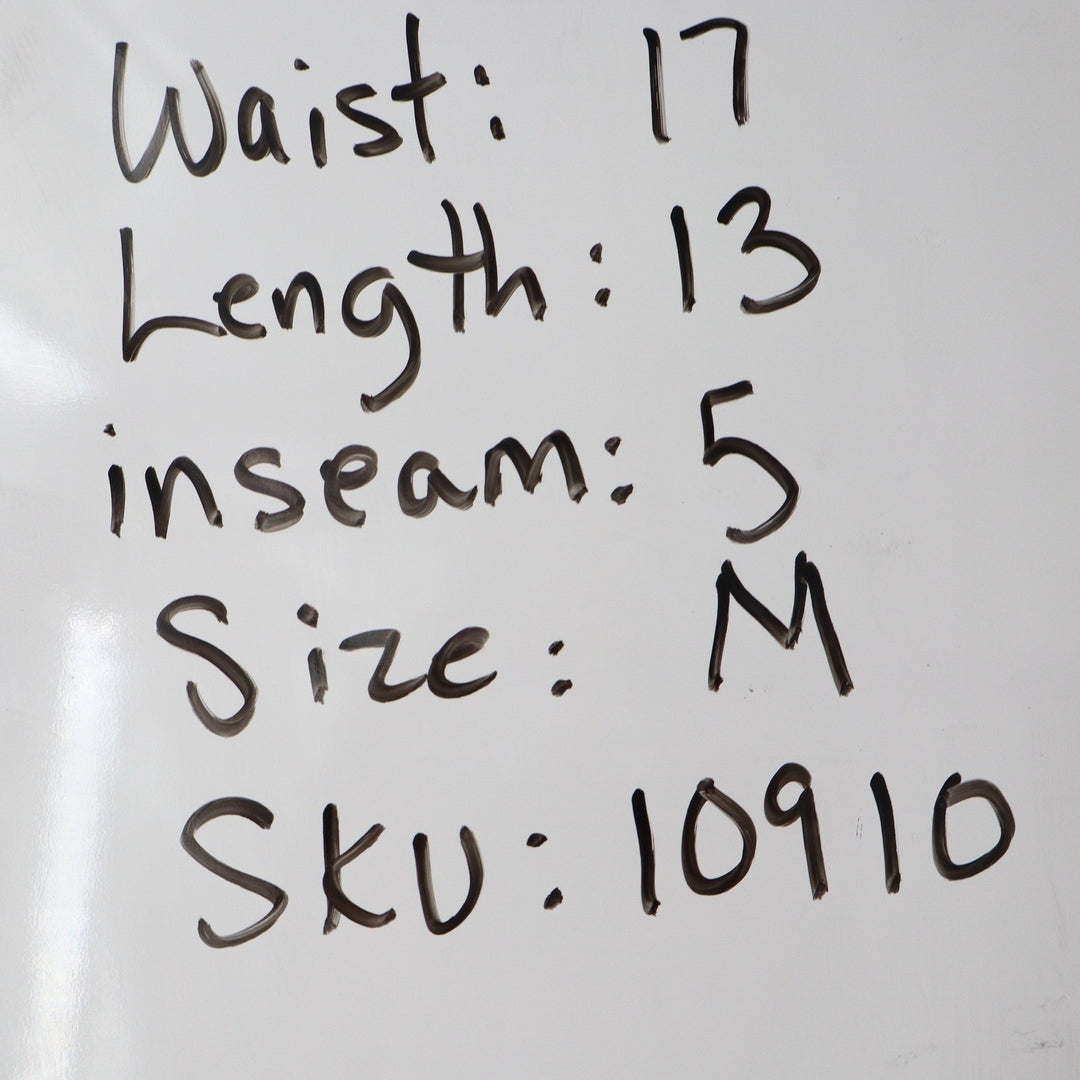 Waist: 17
Length: 13
inseam: 5
Size: M
SKU: 10910